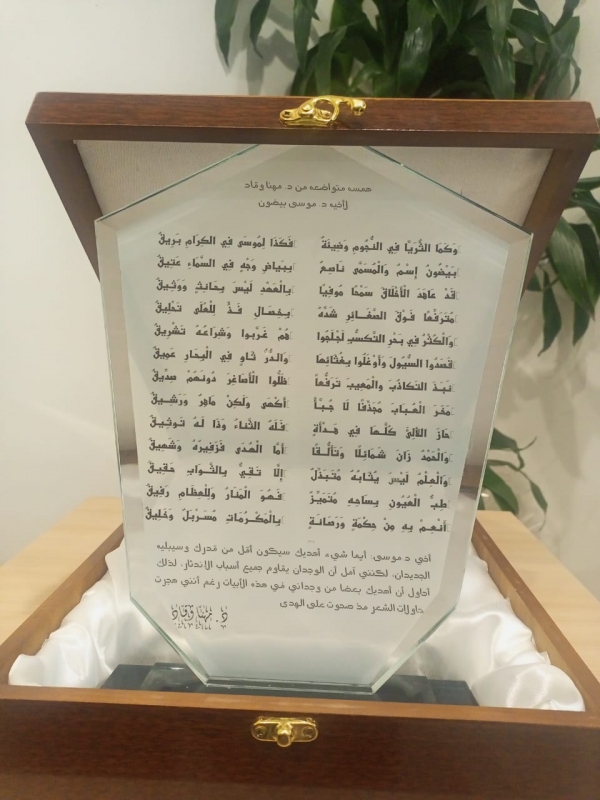 همسه متواضعه من د. مهنا وقاد
لأخيه د. موسى بيضون
وَكَمَا الثُّرَيَّا فِي النُّجُومِ وَضِيئَةٌ فَكَذَا لِمُوسَى فِي الكِرَامِ بَرِيقُ
بَيْضُونُ إِسْمٌ وَالْمُسَمَّى نَاصِعٌ بِبَيَاضِ وَجْهٍ فِي السَّمَاءِ عَتِيقُ
قَدْ عَاهَدَ الْأَخْلَاقَ سَمْحًا مُوفِيًا بِالْعَهْدِ لَيْسَ بِحَانِثٍ وَوَثِيقُ
مُتَرَفِّعًا فَوْقَ الصَّغَائِرِ شَدَّهُ بِخِصَالِ فَذٍّ لِلْعُلَى تَحْلِيقُ
وَالْكُثْرُ فِي بَحْرِ التَّكَسُّبِ لَجْلَجُوا هُمْ غَرَّبُوا وَشِرَاعُهُ تَشْرِيقُ
قَصَدُوا السُّيُولَ وَأَوْغَلُوا بِغُثَائِهَا وَالدُّرُّ ثَاوٍ فِي الْبِحَارِ عَمِيقُ
نَبَذَ التَّكَاذُبَ وَالْمَعِيبَ تَرَفُّعاً ظَلُّوا الْأَصَاغِرَ دُونَهُمْ صِدِّيقُ
مَخَرَ الْعُبَابَ مُجَذِّفًا لَا جُبَّأً أَكْهَى وَلَكِنْ مَاهِرٌ وَرَشِيقُ
حَازَ اللآلِئَ كُلَّهَا فِي هَدْأَةٍ فَلَهُ الثَّنَاءُ وَذَا لَهُ تَوْثِيقُ
وَالْحَمْدُ زَانَ شَمَائِلًا وَتَأَلُّقًا أَمَّا الْهُدَى فَزَفِيرُهُ وَشَهِيقُ
وَالْعِلْمُ لَيْسَ يَنَابُهُ مُتَبَذِّلٌ إِلَّا تَقِيٌّ بِالثَّوَابِ حَقِيقُ
طِبُّ الْعُيُونِ بِسَاحِهِ مُتَمَيِّزٌ فَهُوَ الْمَنَارُ وَلِلْعِظَامِ رَفِيقُ
أَنْعِمْ بِهِ مِنْ حِكْمَةٍ وَرَصَانَةٍ بِالْمَكْرُمَاتِ مُسَرْبَلٌ وَخَلِيقُ
أخي د.موسى: أيما شيء أهديك سيكون أقل من قدرك وسيبليه
الجديدان، لكنني آمل أن الوجدان يقاوم جميع أسباب الاندثار، لذلك
أحاول أن أهديك بعضا من وجداني في هذه الأبيات رغم أنني هجرت
محاولات الشعر مذ صحوت على الهدى
د. مهنا وقاد